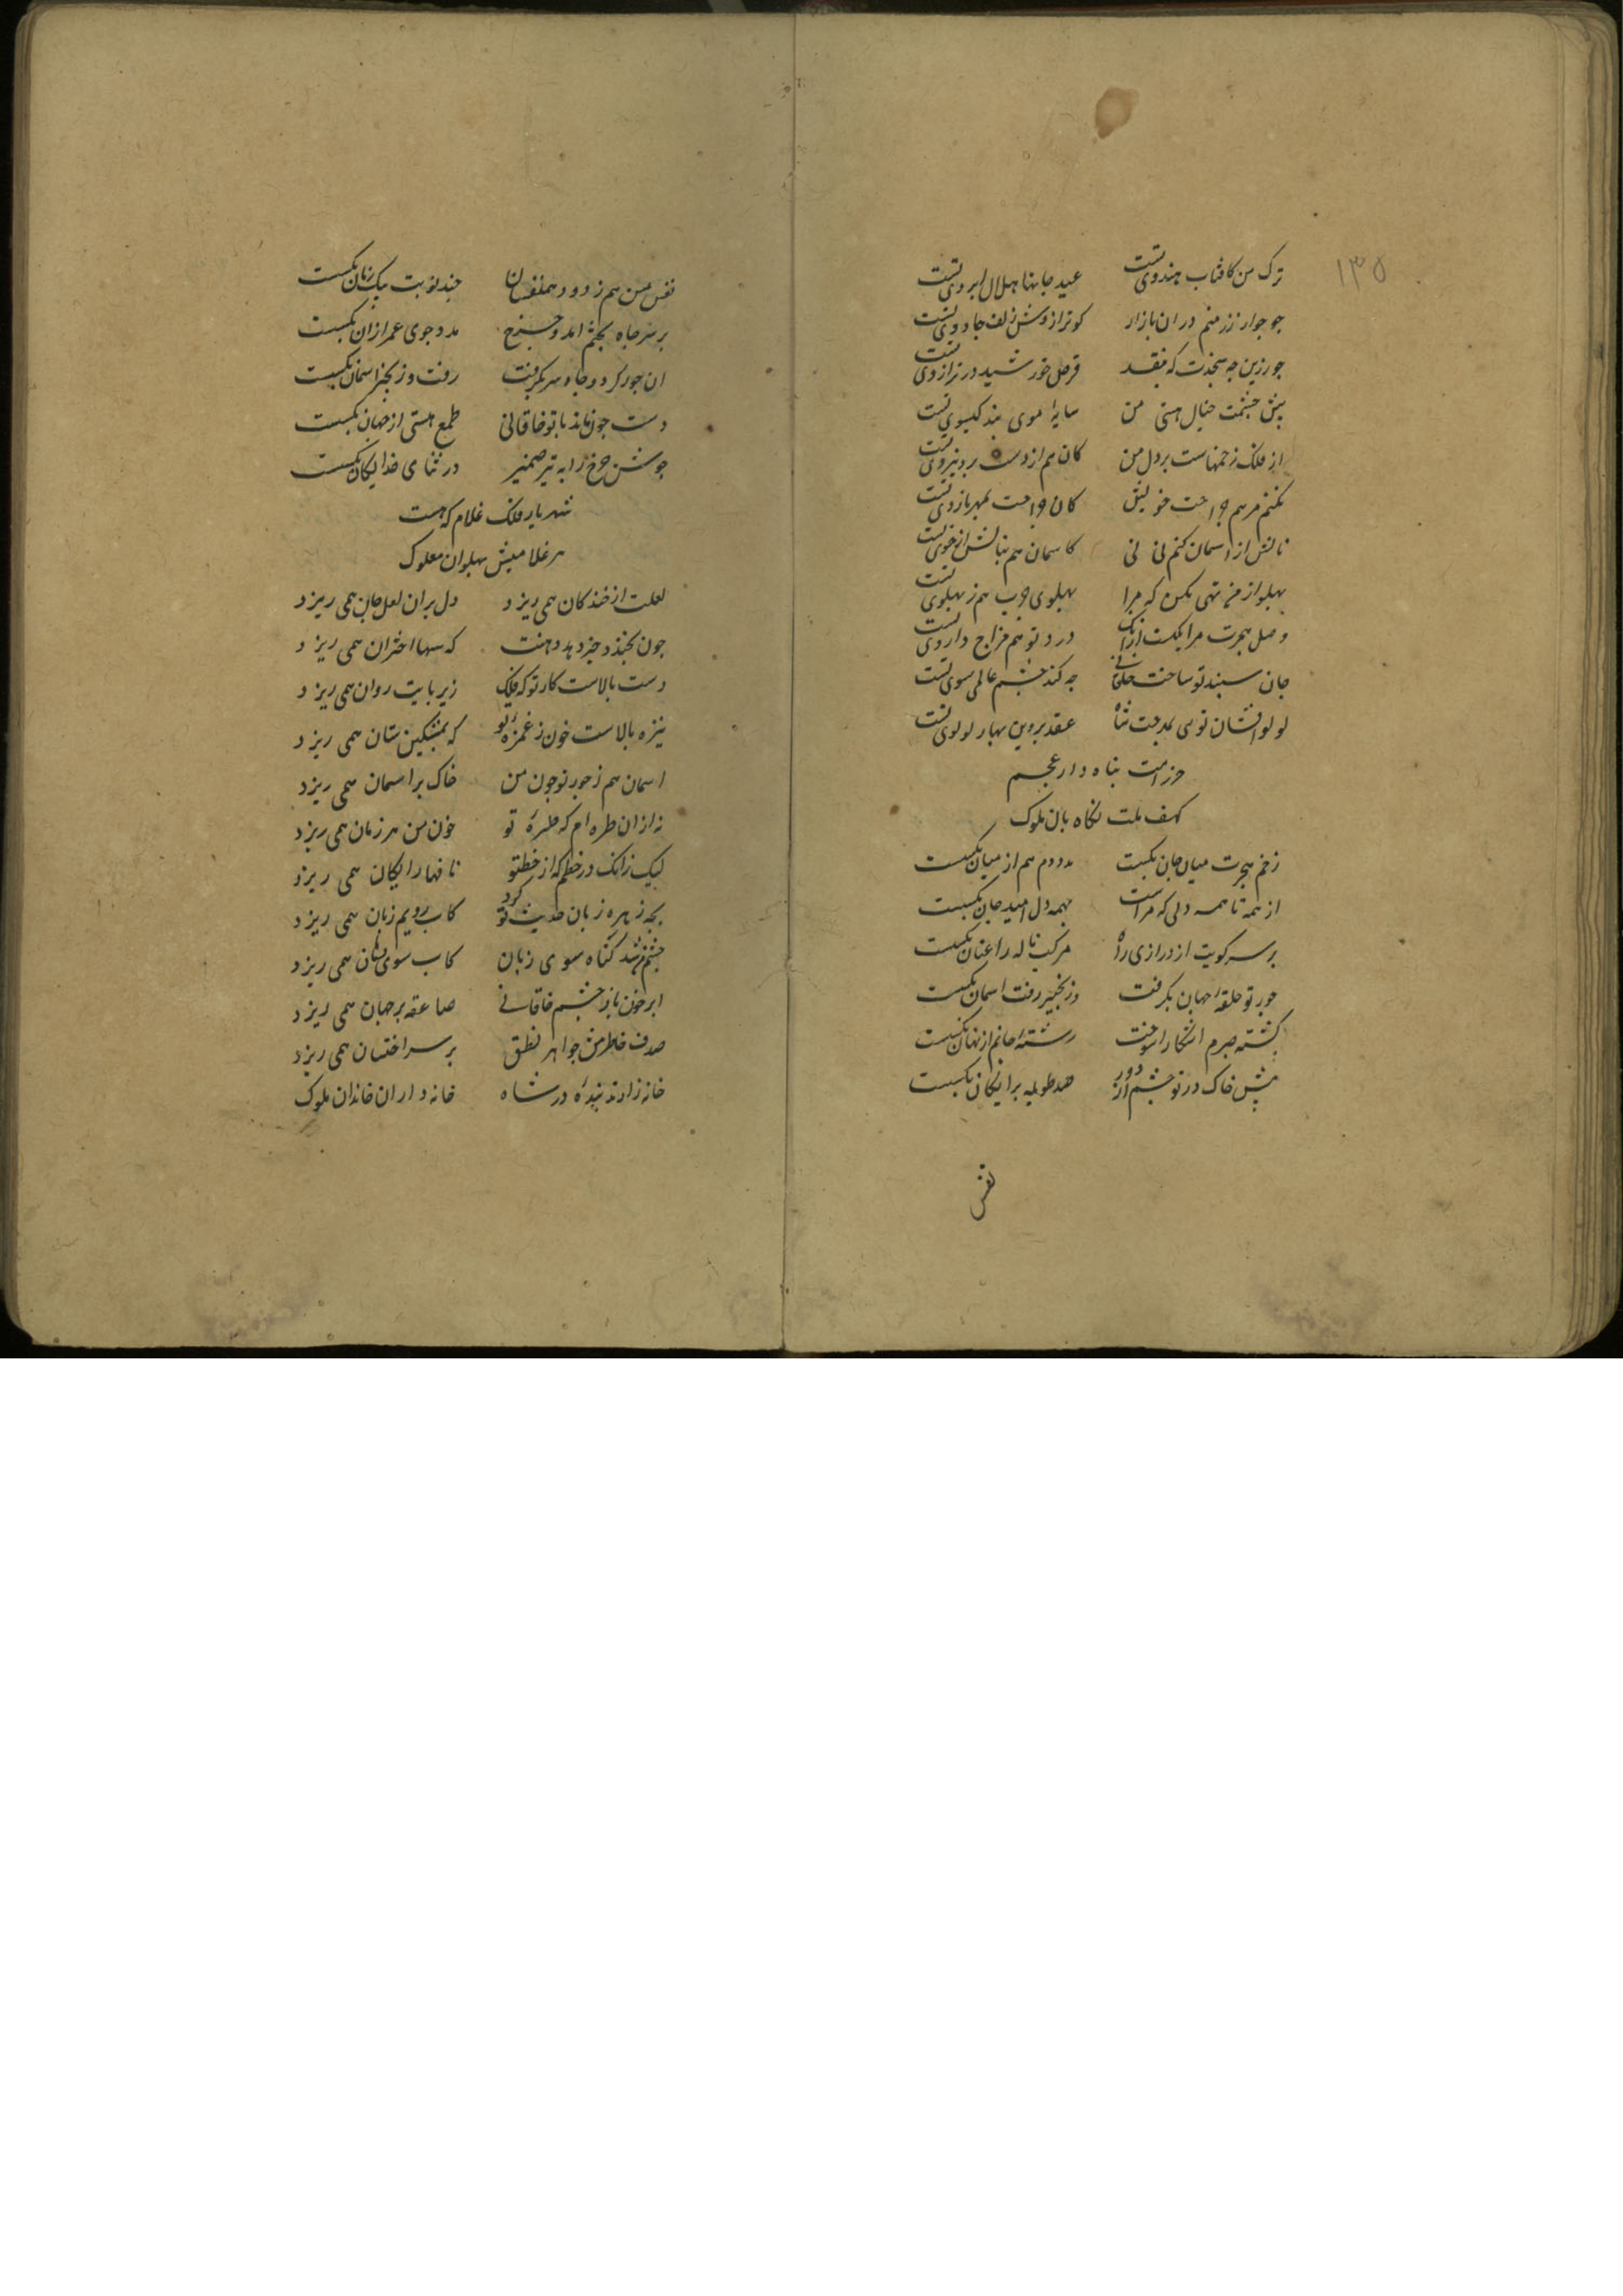 ۱۳۵
ترک من کافتاب هندوی تست عید جانها هلال ابروی تست
جو جو از زر منم در ان بازار کو ترازوش زلف جادوی تست
جو زرین چه سنجدت که بنقد قرص خورشید در ترازوی تست
پیش چشمت خیال هستی من سایه موی بند کیسوی تست
از فلک زخمهاست بر دل من کان هم از دست برد نیروی تست
نکنم مرهم جراحت خویش کان جراحت بمهر بازوی تست
نالش از اسمان کنم نی نی کاسمان هم بنالش از خوی تست
پهلو از من تهی مکن که مرا پهلوی چرب هم ز پهلوی تست
وصل هجرت مرا یکست ازانک درد تو هم مزاج داروی تست
جان سپند تو ساخت خاقانی چه کند چشم عالمی سوی تست
لولو افشان توی بمدحت شاه عقد پروین بهار لولوی تست
حرز امت پناه دار عجم
کهف ملت نکاه بان ملوک
زخم هجرت میان جان بکسست مددم هم از میان بکسست
از همه تا همه دلی که مراست بهمه دل امید جان بکسست
بر سر کویت از درازی راه مرکب ناله را عنان بکسست
جور تو حلقه جهان بکرفت وز نجیر رفت اسمان بکسست
کشته صبرم اشکارا سوخت رشته جانم از نهان بکسست
پیش خاک در تو چشم از دور صد طویله برایکان بکسست
نفس
نفس من هم ز دود همنفسان چند نوبت بیک زمان بکسست
بر سر چاه بختم امد و چرخ مدد جوی عمر ازان بکسست
ان جو کرد و چاه سر بکرفت رفت و زنجیر اسمان بکسست
دست چون ماند با تو خاقانی طمع هستی از جهان بکسست
جوشن چرخ را به تیر ضمیر در ثنای خدایکان بکسست
شهریار فلک غلام که هست
هر غلامیش پهلوان ملوک
لعلت از خنده کان همی ریزد دل بران لعل جان همی ریزد
چون بخندد خبر دهد دهنت که سها اختران همی ریزد
دست بالاست کار تو که فلک زیر پایت روان همی ریزد
نیزه بالاست خون ز غمزه تو که بمشکین سنان همی ریزد
اسمان هم ز جور تو چون من خاک بر اسمان همی ریزد
نه ازان طره ام که طره تو خون من هر زمان همی ریزد
لیک زانک در خطم که از خط تو نافها رایکان همی ریزد
بچه زهره زبان حدیث تو کرد کاب رویم زبان همی ریزد
چشمم شد کناه سوی زبان کاب سوی شان همی ریزد
ابر خون بار چشم خاقانی صاعقه بر جهان همی ریزد
صدف خاطرش جواهر نطق بر سر اخستان همی ریزد
خانه زادند بنده در شاه خانه داران خاندان ملوک